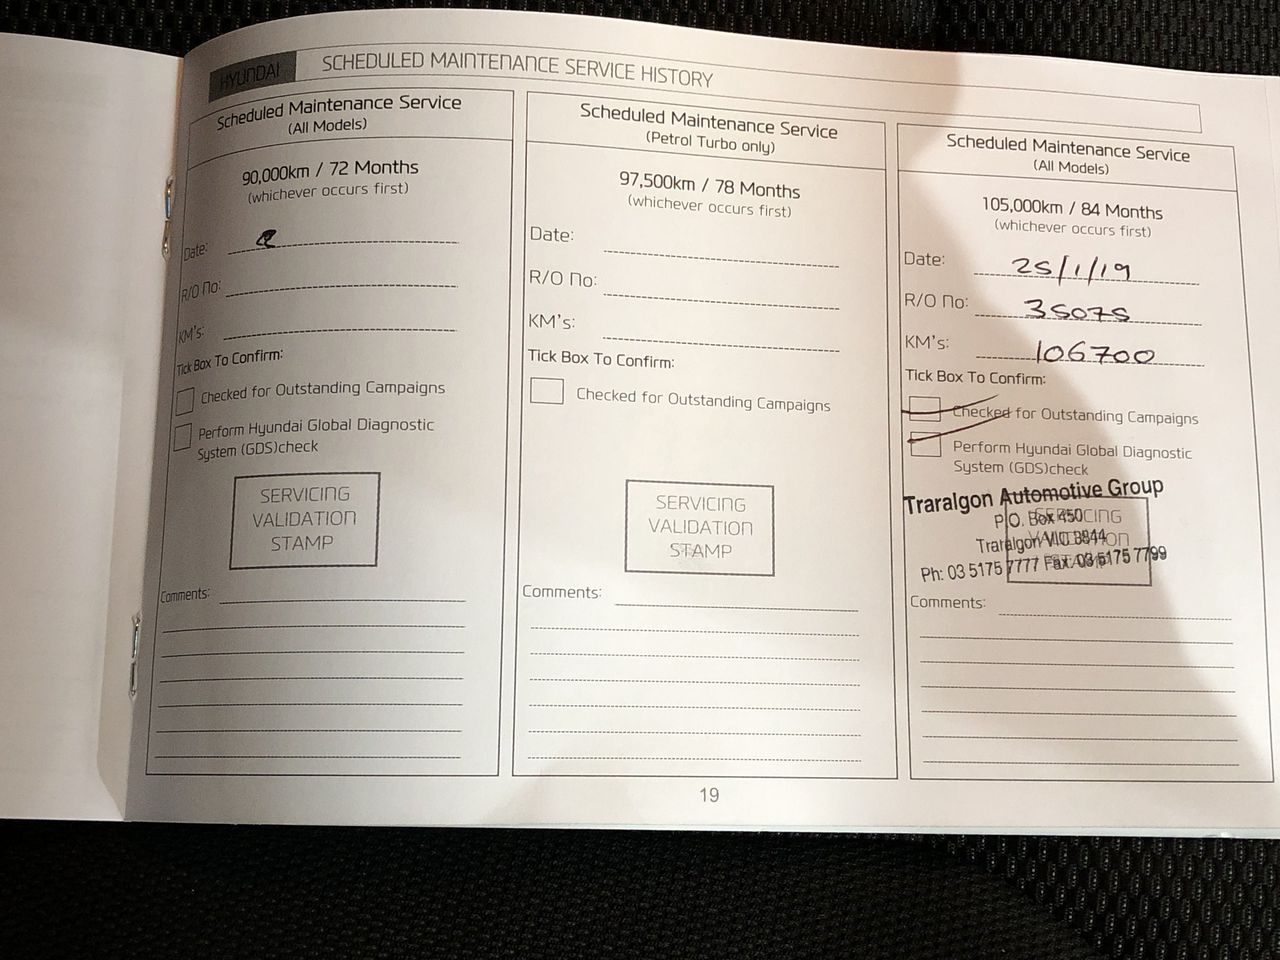 HYUNDAI
SCHEDULED MAINTENANCE SERVICE HISTORY
Scheduled Maintenance Service
(All Models)
90,000km / 72 Months
(whichever occurs first)
Date:
R/O No:
KM's:
Tick Box To Confirm:
Checked for Outstanding Campaigns
Perform Hyundai Global Diagnostic
System (GDS)check
SERVICING
VALIDATION
STAMP
Comments:
Scheduled Maintenance Service
(Petrol Turbo only)
97,500km / 78 Months
(whichever occurs first)
Date:
R/O No:
KM's:
Tick Box To Confirm:
Checked for Outstanding Campaigns
SERVICING
VALIDATION
STAMP
Comments:
Scheduled Maintenance Service
(All Models)
105,000km / 84 Months
(whichever occurs first)
Date: 25/1/19
R/O No: 35075
KM's: 106700
Tick Box To Confirm:
Checked for Outstanding Campaigns
Perform Hyundai Global Diagnostic
System (GDS)check
Traralgon Automotive Group
P.O. Box 450
Traralgon VIC 3844
Ph: 03 5175 7777 Fax: 03 5175 7799
SERVICING
VALIDATION
STAMP
Comments:
19